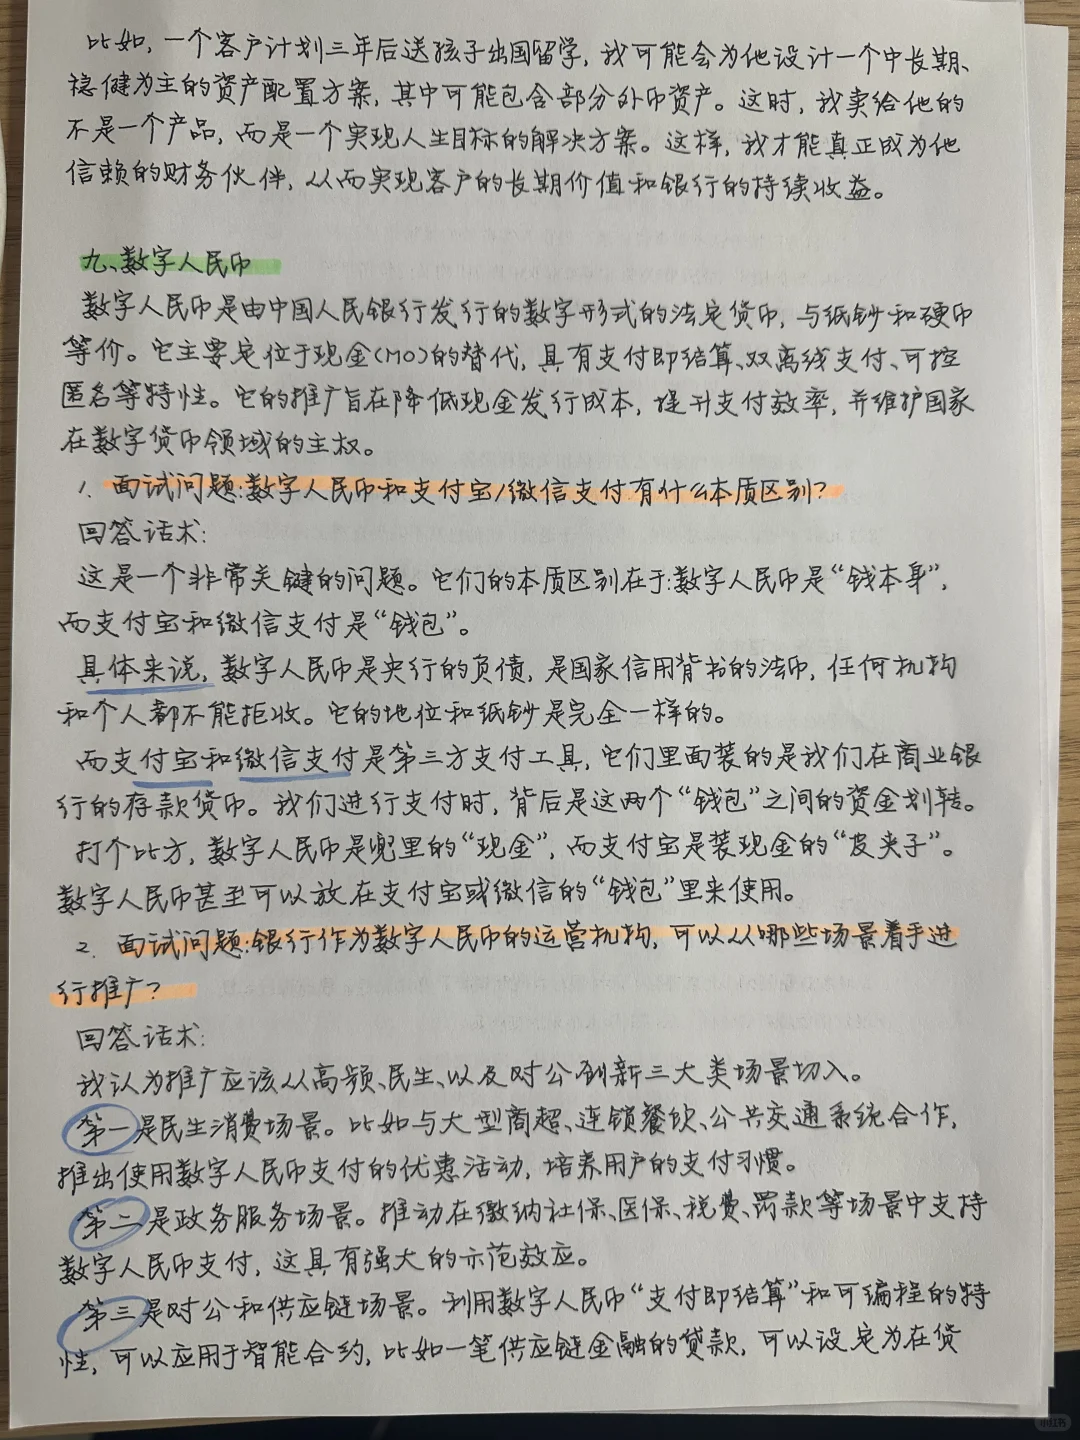 比如，一个客户计划三年后送孩子出国留学，我可能会为他设计一个中长期、
稳健为主的资产配置方案，其中可能包含部分外币资产。这时，我卖给他的
不是一个产品，而是一个实现人生目标的解决方案。这样，我才能真正成为他
信赖的财务伙伴，从而实现客户的长期价值和银行的持续收益。
九、数字人民币
数字人民币是由中国人民银行发行的数字形式的法定货币，与纸钞和硬币
等价。它主要定位于现金(M0)的替代，具有支付即结算、双离线支付、可控
匿名等特性。它的推广旨在降低现金发行成本，提升支付效率，并维护国家
在数字货币领域的主权。
1. 面试问题:数字人民币和支付宝/微信支付有什么本质区别?
回答话术:
这是一个非常关键的问题。它们的本质区别在于:数字人民币是“钱本身”，
而支付宝和微信支付是“钱包”。
具体来说，数字人民币是央行的负债，是国家信用背书的法币，任何机构
和个人都不能拒收。它的地位和纸钞是完全一样的。
而支付宝和微信支付是第三方支付工具，它们里面装的是我们在商业银
行的存款货币。我们进行支付时，背后是这两个“钱包”之间的资金划转。
打个比方，数字人民币是兜里的“现金”，而支付宝是装现金的“皮夹子”。
数字人民币甚至可以放在支付宝或微信的“钱包”里来使用。
2. 面试问题:银行作为数字人民币的运营机构，可以从哪些场景着手进
行推广?
回答话术:
我认为推广应该从高频、民生、以及对公创新三大类场景切入。
第一是民生消费场景。比如与大型商超、连锁餐饮、公共交通系统合作，
推出使用数字人民币支付的优惠活动，培养用户的支付习惯。
第二是政务服务场景。推动在缴纳社保、医保、税费、罚款等场景中支持
数字人民币支付，这具有强大的示范效应。
第三是对公和供应链场景。利用数字人民币“支付即结算”和可编程的特
性，可以应用于智能合约，比如一笔供应链金融的贷款，可以设定为在货
小红书